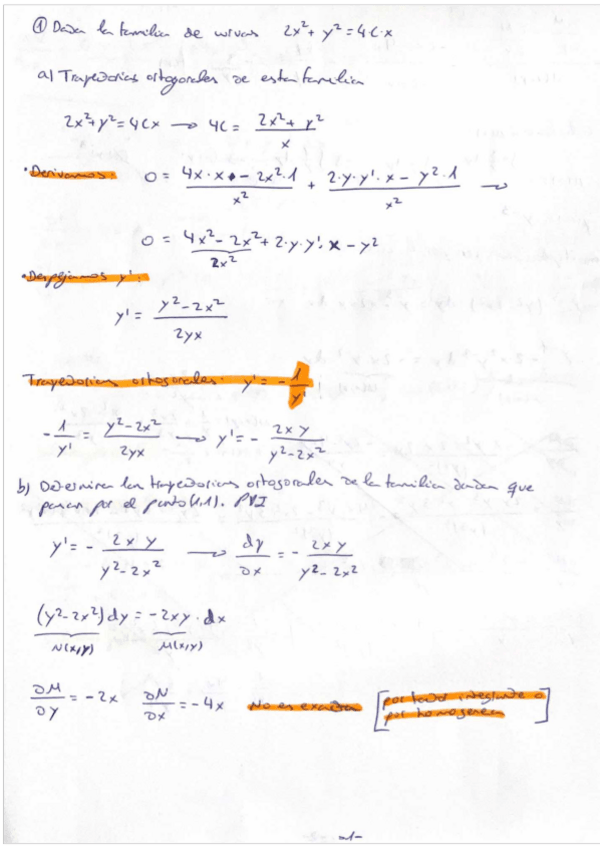 ① Dada la familia de curvas 2x² + y² = 4C·x
a) Trayectorias ortogonales de esta familia
2x² + y² = 4Cx → 4C = (2x² + y²)/x
• Derivamos: 0 = (4x·x - 2x²·1)/x² + (2·y·y'·x - y²·1)/x² →
0 = (4x² - 2x² + 2·y·y'·x - y²)/2x²
• Despejamos y':
y' = (y² - 2x²)/2yx
Trayectorias ortogonales: y' = -1/y'
-1/y' = (y² - 2x²)/2yx → y' = - 2xy/(y² - 2x²)
b) Determina las trayectorias ortogonales de la familia dada que
pasan por el punto (1,1). PVI
y' = - 2xy/(y² - 2x²) → dy/dx = - 2xy/(y² - 2x²)
(y² - 2x²) dy = -2xy·dx
N(x,y) M(x,y)
∂M/∂y = -2x ∂N/∂x = -4x No es exacta [por factor integrante o
por homogénea]
-1-